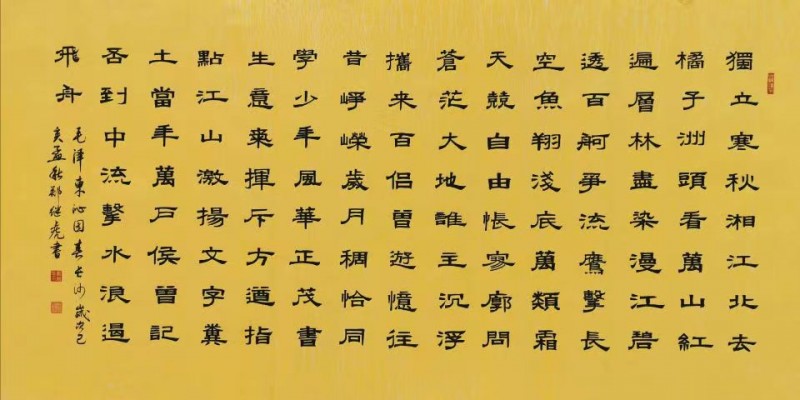 獨立寒秋湘江北去
橘子洲頭看萬山紅
遍層林盡染漫江碧
透百舸爭流鷹擊長
空魚翔淺底萬類霜
天競自由悵寥廓問
蒼茫大地誰主沉浮
攜来百侣曾遊憶往
昔崢嶸歲月稠恰同
學少年風華正茂書
生意氣揮斥方遒指
點江山激揚文字糞
土當年萬戶侯曾記
否到中流擊水浪遏
飛舟
毛泽東沁园春长沙歲次己
亥孟秋郑继虎書